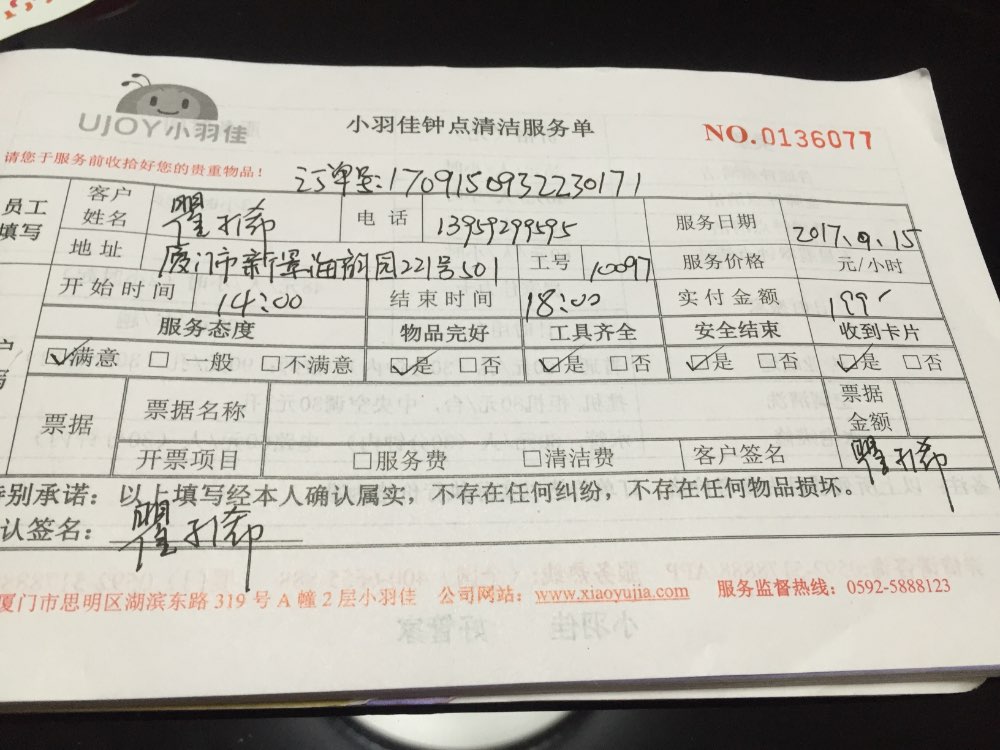 UJOY小羽佳
小羽佳钟点清洁服务单
NO.0136077
请您于服务前收拾好您的贵重物品！
订单号:1709150932230171
员工填写 客户姓名 电话 13959299595 服务日期 2017.9.15
地址 厦门市新景海韵园221号501 工号 10097 服务价格 元/小时
开始时间 14:00 结束时间 18:00 实付金额 199
服务态度 物品完好 工具齐全 安全结束 收到卡片
☑满意 □一般 □不满意 ☑是 □否 ☑是 □否 ☑是 □否 ☑是 □否
票据 票据名称 票据金额
开票项目 □服务费 □清洁费 客户签名
特别承诺：以上填写经本人确认属实，不存在任何纠纷，不存在任何物品损坏。
认签名：
厦门市思明区湖滨东路 319 号 A 幢 2 层小羽佳 公司网站：www.xiaoyujia.com 服务监督热线：0592-5888123